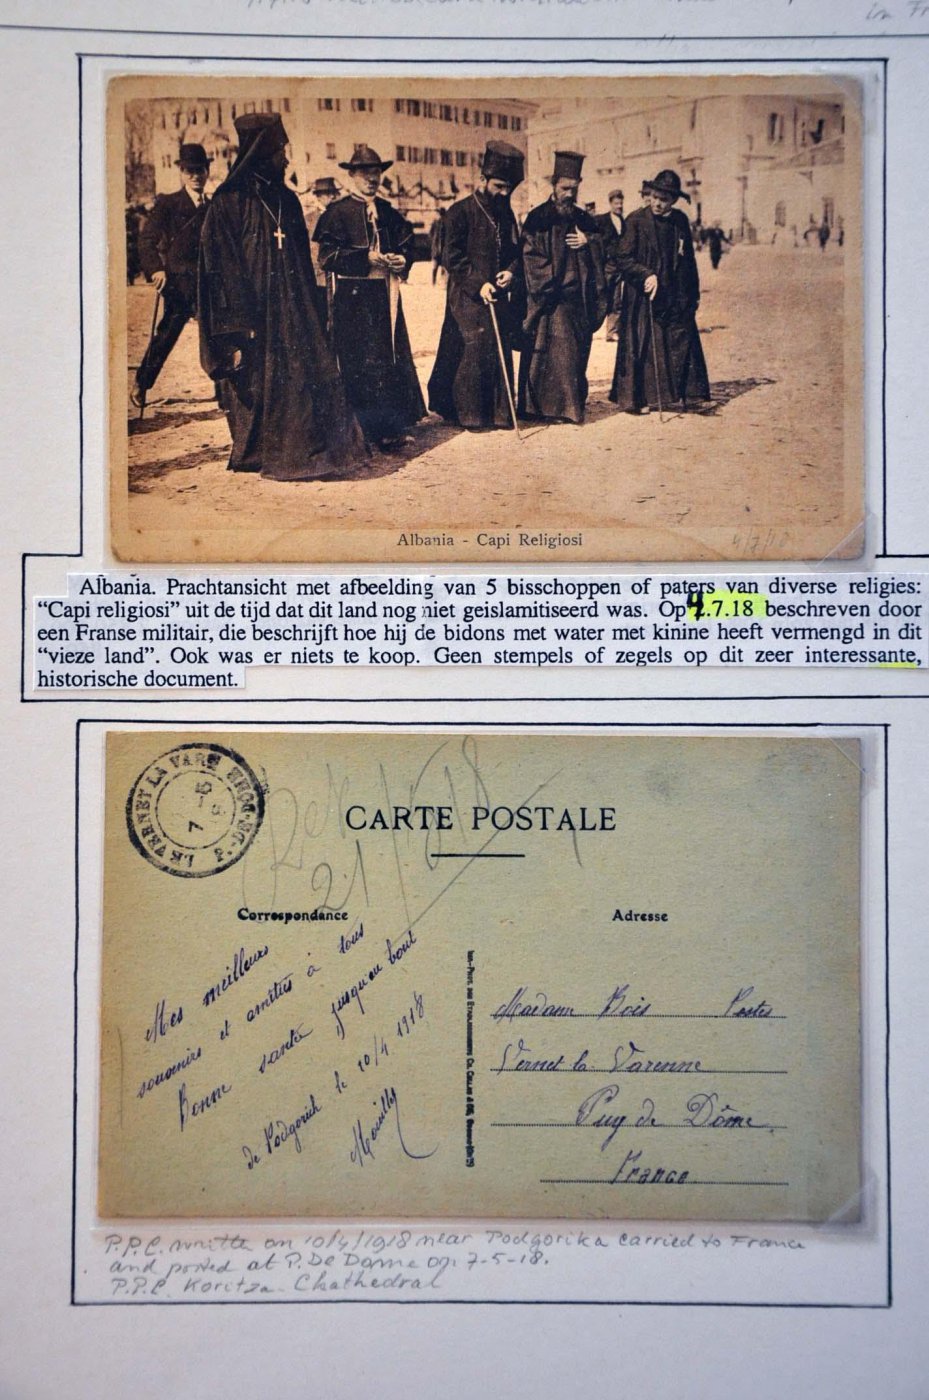 in Fr
Albania - Capi Religiosi
4/7/18
Albania. Prachtansicht met afbeelding van 5 bisschoppen of paters van diverse religies:
“Capi religiosi” uit de tijd dat dit land nog niet geislamitiseerd was. Op 4.7.18 beschreven door
een Franse militair, die beschrijft hoe hij de bidons met water met kinine heeft vermengd in dit
“vieze land”. Ook was er niets te koop. Geen stempels of zegels op dit zeer interessante,
historische document.
LE VERNET LA VARENNE
P.-DE-DOME
7
5
CARTE POSTALE
21/5/18
Correspondance
Adresse
Mes meilleurs
souvenirs et amitiés à tous
Bonne santé jusqu'au bout
de Podgorieh le 10/4 1918
Madame Bois Postes
Vernet la Varenne
Puy de Dôme
France
P.P.C. written on 10/4/1918 near Podgorika carried to France
and posted at P. De Dome on 7-5-18.
P.P.C. Koritza Chathedral